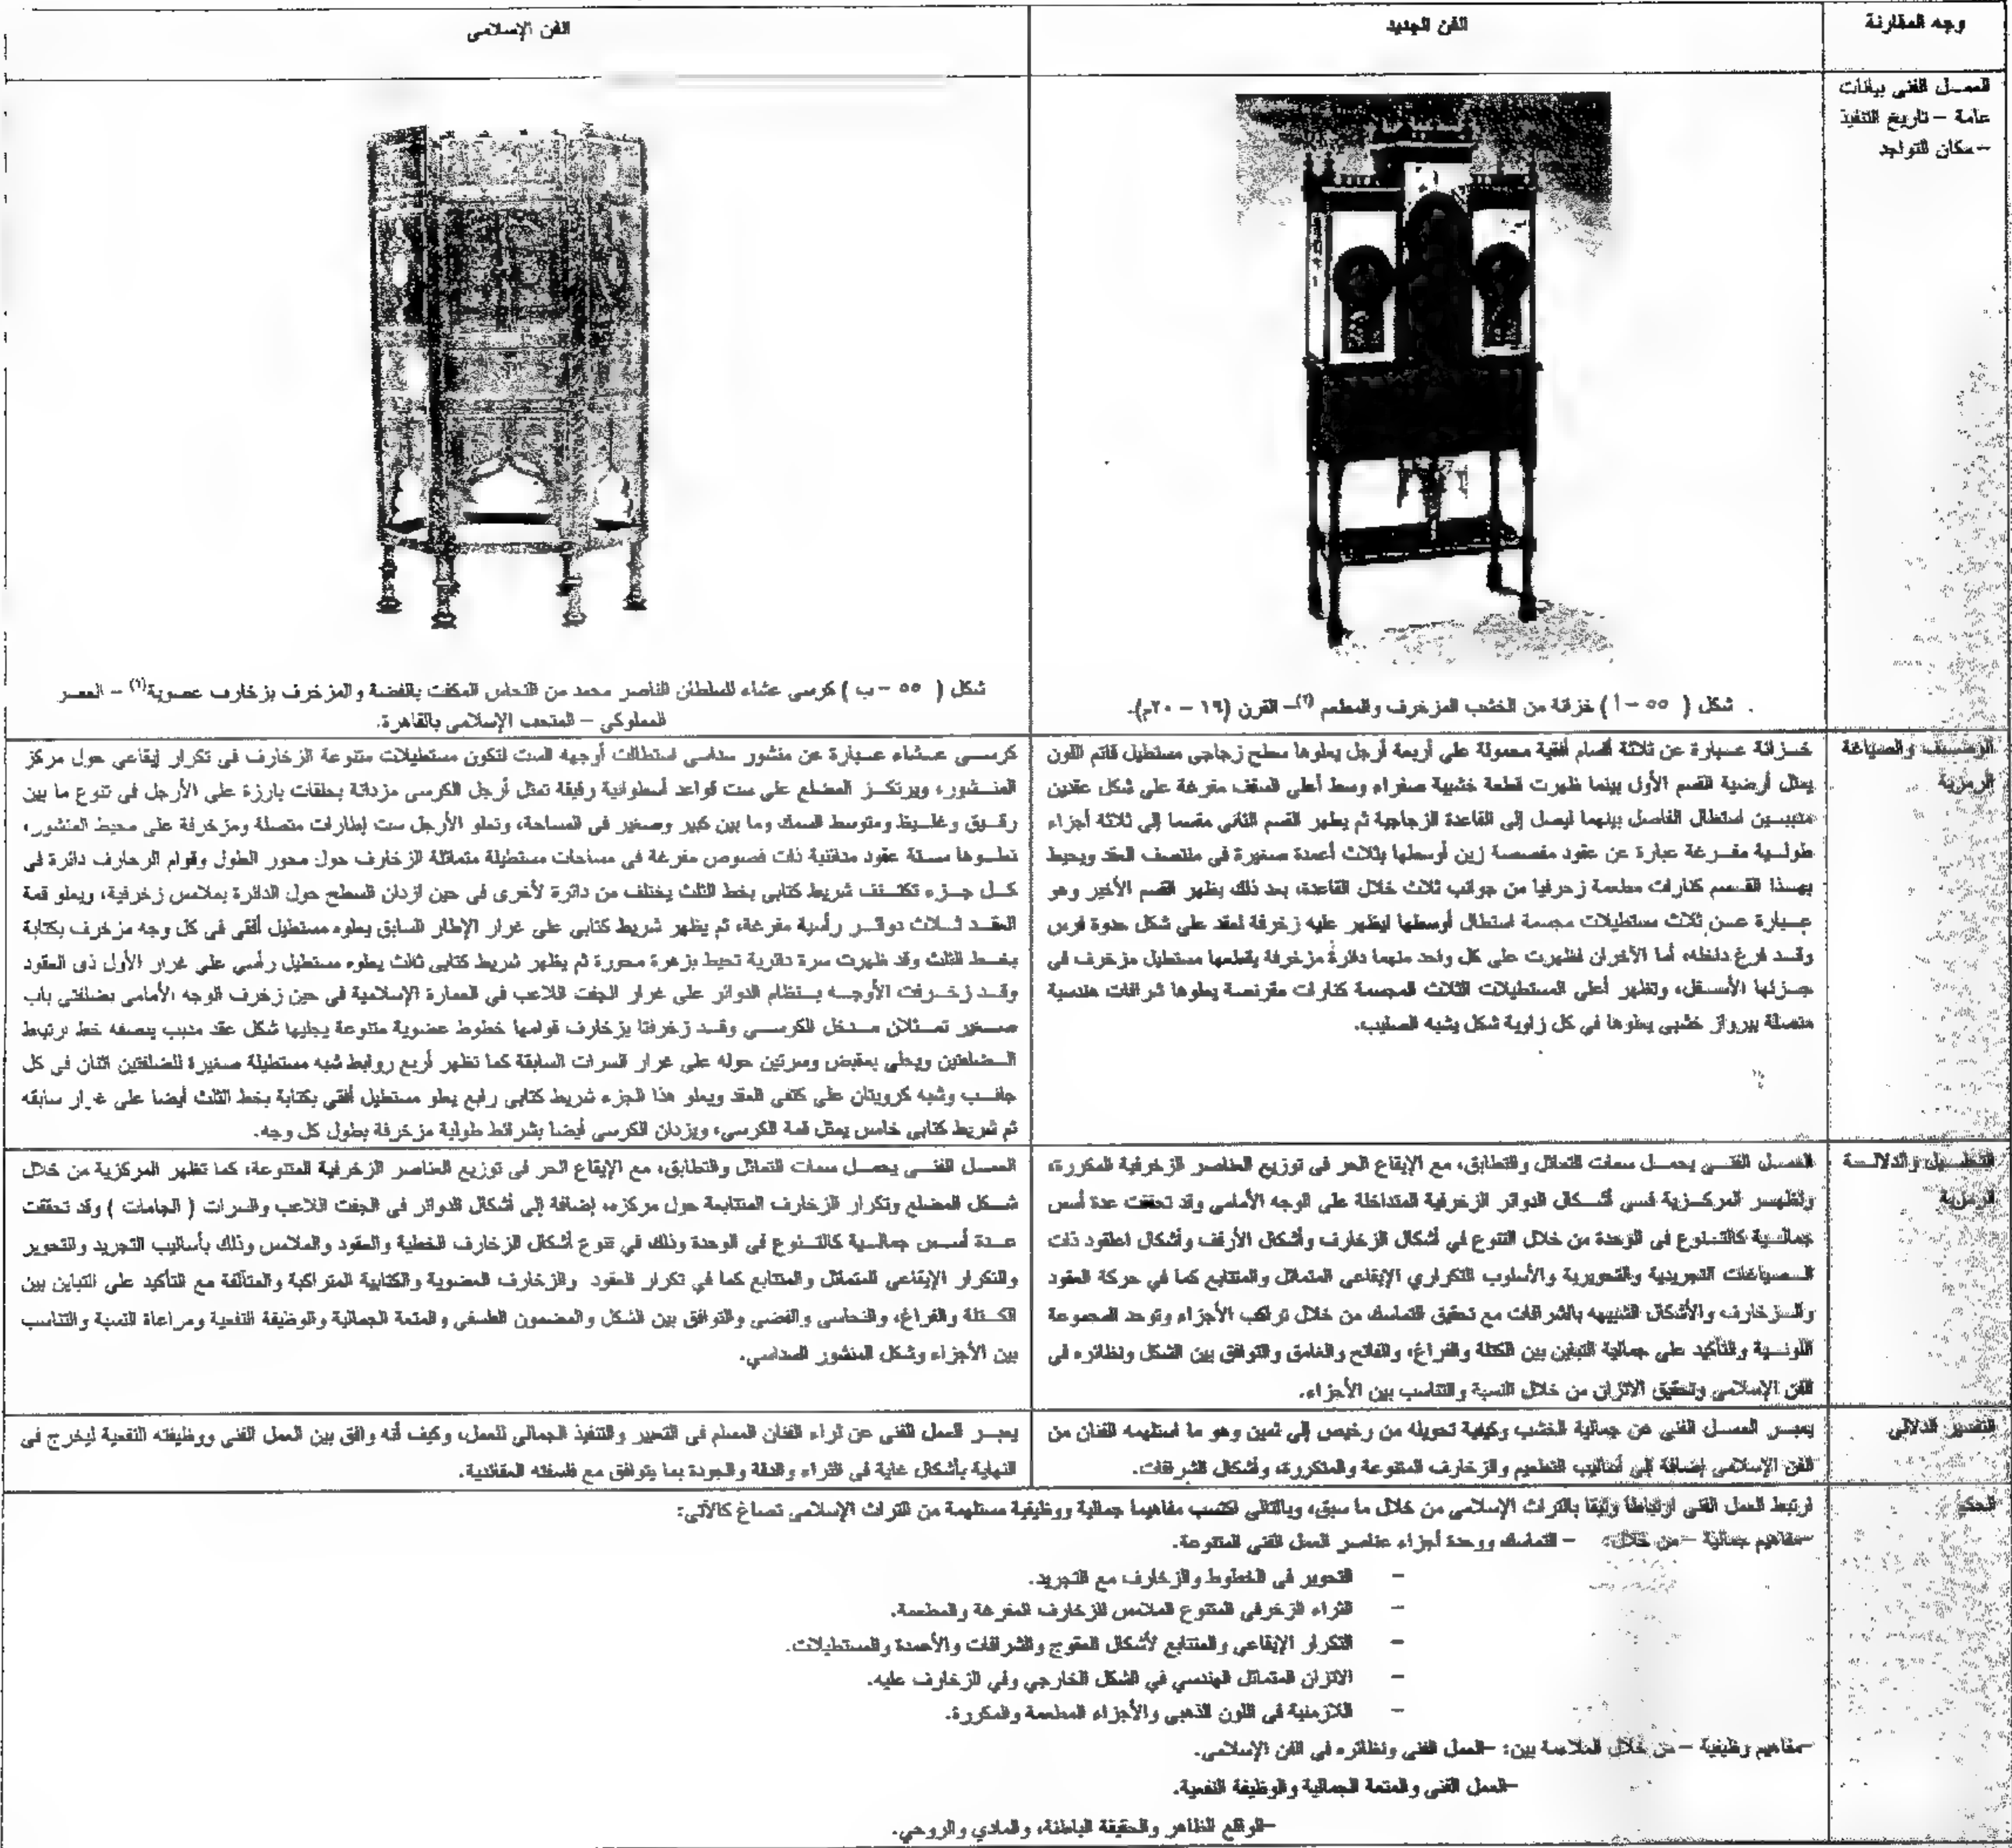 وجه المقارنة
الفن الجديد
الفن الإسلامى
العمــل الفنى بيانات
عامة – تاريخ التنفيذ
– مكان التواجد
شكل ( ٥٥ – أ ) خزانة من الخشب المزخرف والمطعم (٢)– القرن (١٩ – ٢٠م).
شكل ( ٥٥ – ب ) كرسى عشاء للسلطان الناصر محمد من النحاس المكفت بالفضة والمزخرف بزخارف عضوية(١) – العصــر
المملوكى – المتحف الإسلامى بالقاهرة.
الوصــف والصياغة
الرمزية
خــزانة عــبارة عن ثلاثة أقسام أفقية محمولة على أربعة أرجل يعلوها سطح زجاجى مستطيل قاتم اللون
يمثل أرضية القسم الأول بينما ظهرت قطعة خشبية صفراء وسط أعلى السقف مفرغة على شكل عقدين
مدببــين استطال الفاصل بينهما ليصل إلى القاعدة الزجاجية ثم يظهر القسم الثانى مقسما إلى ثلاثة أجزاء
طولــية مفــرغة عبارة عن عقود مفصصة زين أوسطها بثلاث أعمدة صغيرة فى منتصف العقد ويحيط
بهــذا القــسم كنارات مطعمة زخرفيا من جوانب ثلاث خلال القاعدة، بعد ذلك يظهر القسم الأخير وهو
عــبارة عــن ثلاث مستطيلات مجسمة استطال أوسطها ليظهر عليه زخرفة لعقد على شكل حدوة فرس
وقــد فرغ داخله، أما الأخران فظهرت على كل واحد منهما دائرة مزخرفة يقطعها مستطيل مزخرف فى
جــزئها الأسفل، وتظهر أعلى المستطيلات الثلاث المجسمة كنارات مقرنصة يعلوها شرافات هندسية
متصلة ببرواز خشبى يعلوها في كل زاوية شكل يشبه الصليب.
كرســى عــشاء عــبارة عن منشور سداسى استطالت أوجهه الست لتكون مستطيلات متنوعة الزخارف فى تكرار إيقاعي حول مركز
المنــشور، ويرتكــز المضلع على ست قواعد أسطوانية رفيقة تمثل أرجل الكرسى مزدانة بحلقات بارزة على الأرجل فى تنوع ما بين
رقــيق وغلــيظ ومتوسط السمك وما بين كبير وصغير فى المساحة، وتعلو الأرجل ست إطارات متصلة ومزخرفة على محيط المنشور،
تعلــوها ســتة عقود مدائنية ذات فصوص مفرغة في مساحات مستطيلة متماثلة الزخارف حول محور الطول وقوام الزخارف دائرة فى
كــل جــزء تكتــنف شريط كتابى بخط الثلث يختلف من دائرة لأخرى فى حين ازدان السطح حول الدائرة بملامس زخرفية، ويعلو قمة
العقــد ثــلاث دوائــر رأسية مفرغة، ثم يظهر شريط كتابى على غرار الإطار السابق يعلوه مستطيل أفقى فى كل وجه مزخرف بكتابة
بخــط الثلث وقد ظهرت سرة دائرية تحيط بزهرة محورة ثم يظهر شريط كتابى ثالث يعلوه مستطيل رأسي على غرار الأول ذى العقود
وقــد زخــرفت الأوجــه بــنظام الدوائر على غرار الجفت اللاعب في العمارة الإسلامية فى حين زخرف الوجه الأمامى بضلفتى باب
صــغير تمــثلان مــدخل للكرســى وقــد زخرفتا بزخارف قوامها خطوط عضوية متنوعة يجليها شكل عقد مدبب ينصفه خط ارتباط
الــضلفتين ويحلى بمقبض وسرتين حوله على غرار السرات السابقة كما تظهر أربع روابط شبه مستطيلة صغيرة للضلفتين اثنان في كل
جانــب وشبه كرويتان على كتفى العقد ويعلو هذا الجزء شريط كتابى رابع يعلو مستطيل أفقى بكتابة بخط الثلث أيضا على غرار سابقه
ثم شريط كتابى خامس يمثل قمة الكرسي، ويزدان الكرسى أيضا بشرائط طولية مزخرفة بطول كل وجه.
التحلــيل والدلالــة
الرمزية
العمــل الفنــى يحمــل سمات التماثل والتطابق، مع الإيقاع الحر فى توزيع العناصر الزخرفية المكررة،
وتظهــر المركــزية فــى أشــكال الدوائر الزخرفية المتداخلة على الوجه الأمامى وقد تحققت عدة أسس
جمالــية كالتــنوع فى الوحدة من خلال التنوع في أشكال الزخارف وأشكال الأرفف وأشكال العقود ذات
الــصياغات التجريدية والتحويرية والأسلوب التكراري الإيقاعى المتماثل والمتتابع كما في حركة العقود
والــزخارف والأشكال الشبيهه بالشرافات مع تحقيق التماسك من خلال تراكب الأجزاء وتوحد المجموعة
اللونــية والتأكيد على جمالية التباين بين الكتلة والفراغ، والفاتح والغامق والتوافق بين الشكل ونظائره فى
الفن الإسلامى وتحقيق الاتزان من خلال النسبة والتناسب بين الأجزاء.
العمــل الفنــى يحمــل سمات التماثل والتطابق، مع الإيقاع الحر فى توزيع العناصر الزخرفية المتنوعة، كما تظهر المركزية من خلال
شــكل المضلع وتكرار الزخارف المتتابعة حول مركزه، إضافة إلى أشكال الدوائر فى الجفت اللاعب والسرات ( الجامات ) وقد تحققت
عــدة أســس جمالــية كالتــنوع فى الوحدة وذلك في تنوع أشكال الزخارف الخطية والعقود والملامس وذلك بأساليب التجريد والتحوير
والتكرار الإيقاعي المتماثل والمتتابع كما في تكرار العقود والزخارف العضوية والكتابية المتراكبة والمتآلفة مع التأكيد على التباين بين
الكــتلة والفراغ، والنحاسى والفضى والتوافق بين الشكل والمضمون الفلسفي والمتعة الجمالية والوظيفة النفعية ومراعاة النسبة والتناسب
بين الأجزاء وشكل المنشور السداسي.
التفسير الدلالى
يعبــر العمــل الفنى عن جمالية الخشب وكيفية تحويله من رخيص إلى ثمين وهو ما استلهمه الفنان من
الفن الإسلامى إضافة إلى أساليب التطعيم والزخارف المتنوعة والمتكررة، وأشكال الشرافات.
يعبــر العمل الفنى عن ثراء الفنان المسلم فى التعبير والتنفيذ الجمالى للعمل، وكيف أنه وافق بين العمل الفنى ووظيفته النفعية ليخرج فى
النهاية بأشكال غاية في الثراء والدقة والجودة بما يتوافق مع فلسفته العقائدية.
الحكم
ارتبط العمل الفنى ارتباطا وثيقا بالتراث الإسلامى من خلال ما سبق، وبالتالى اكتسب مفاهيما جمالية ووظيفية مستلهمة من التراث الإسلامى تصاغ كالآتى:
–مفاهيم جمالية – من خلال: – التماسك ووحدة أجزاء عناصر العمل الفنى المتنوعة.
– التحوير فى الخطوط والزخارف مع التجريد.
– الثراء الزخرفى المتنوع الملامس للزخارف المفرغة والمطعمة.
– التكرار الإيقاعى والمتتابع لأشكال العقوج والشرافات والأعمدة والمستطيلات.
– الاتزان المتماثل الهندسي في الشكل الخارجي وفي الزخارف عليه.
– اللازمنية فى اللون الذهبى والأجزاء المطعمة والمكررة.
–مفاهيم وظيفية – من خلال الملاءمة بين: –العمل الفنى ونظائره فى الفن الإسلامى.
–العمل الفنى والمتعة الجمالية والوظيفة النفعية.
–الواقع الظاهر والحقيقة الباطنة، والمادي والروحي.